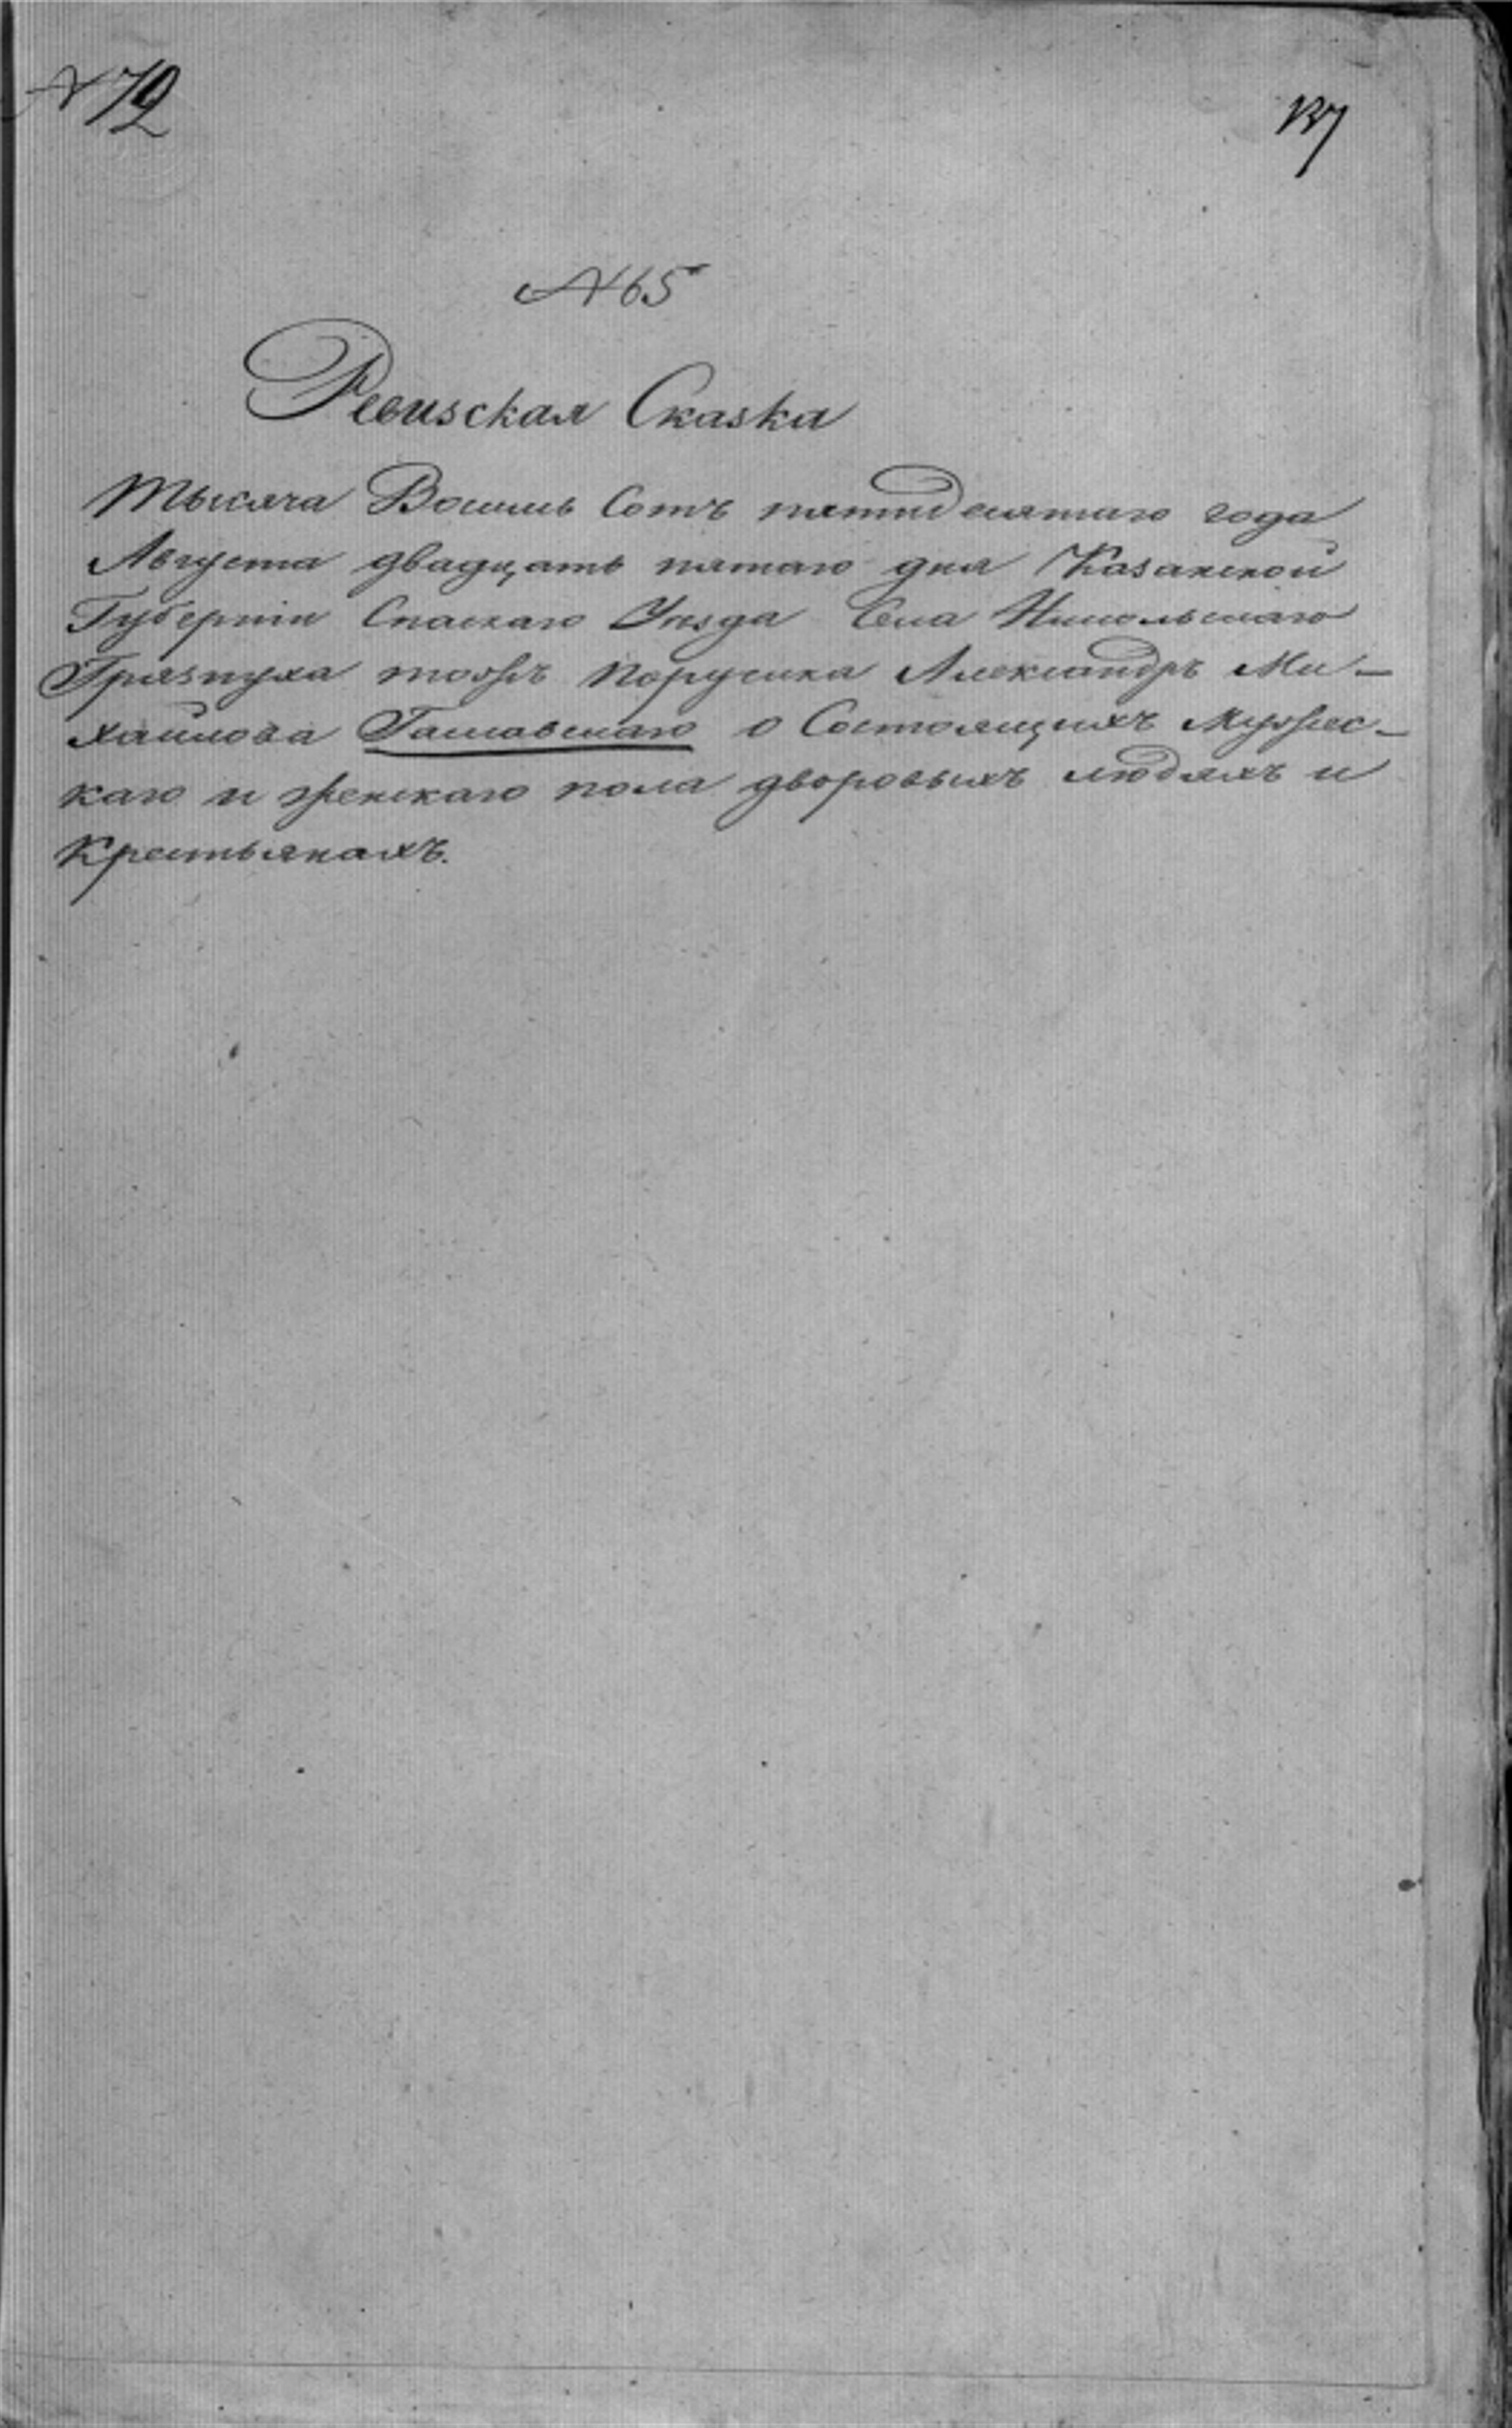 № 72
137
№ 65
Ревизская Сказка
Тысяча Восемь Сотъ пятидесятаго года
Августа двадцать пятаго дня Казанской
Губерніи Спаскаго Уезда Села Никольскаго
Грязнуха тожъ Порутчика Александръ Ми-
хайлова о Состоящихъ Мужес-
каго и женскаго пола дворовыхъ людяхъ и
Крестьянахъ.